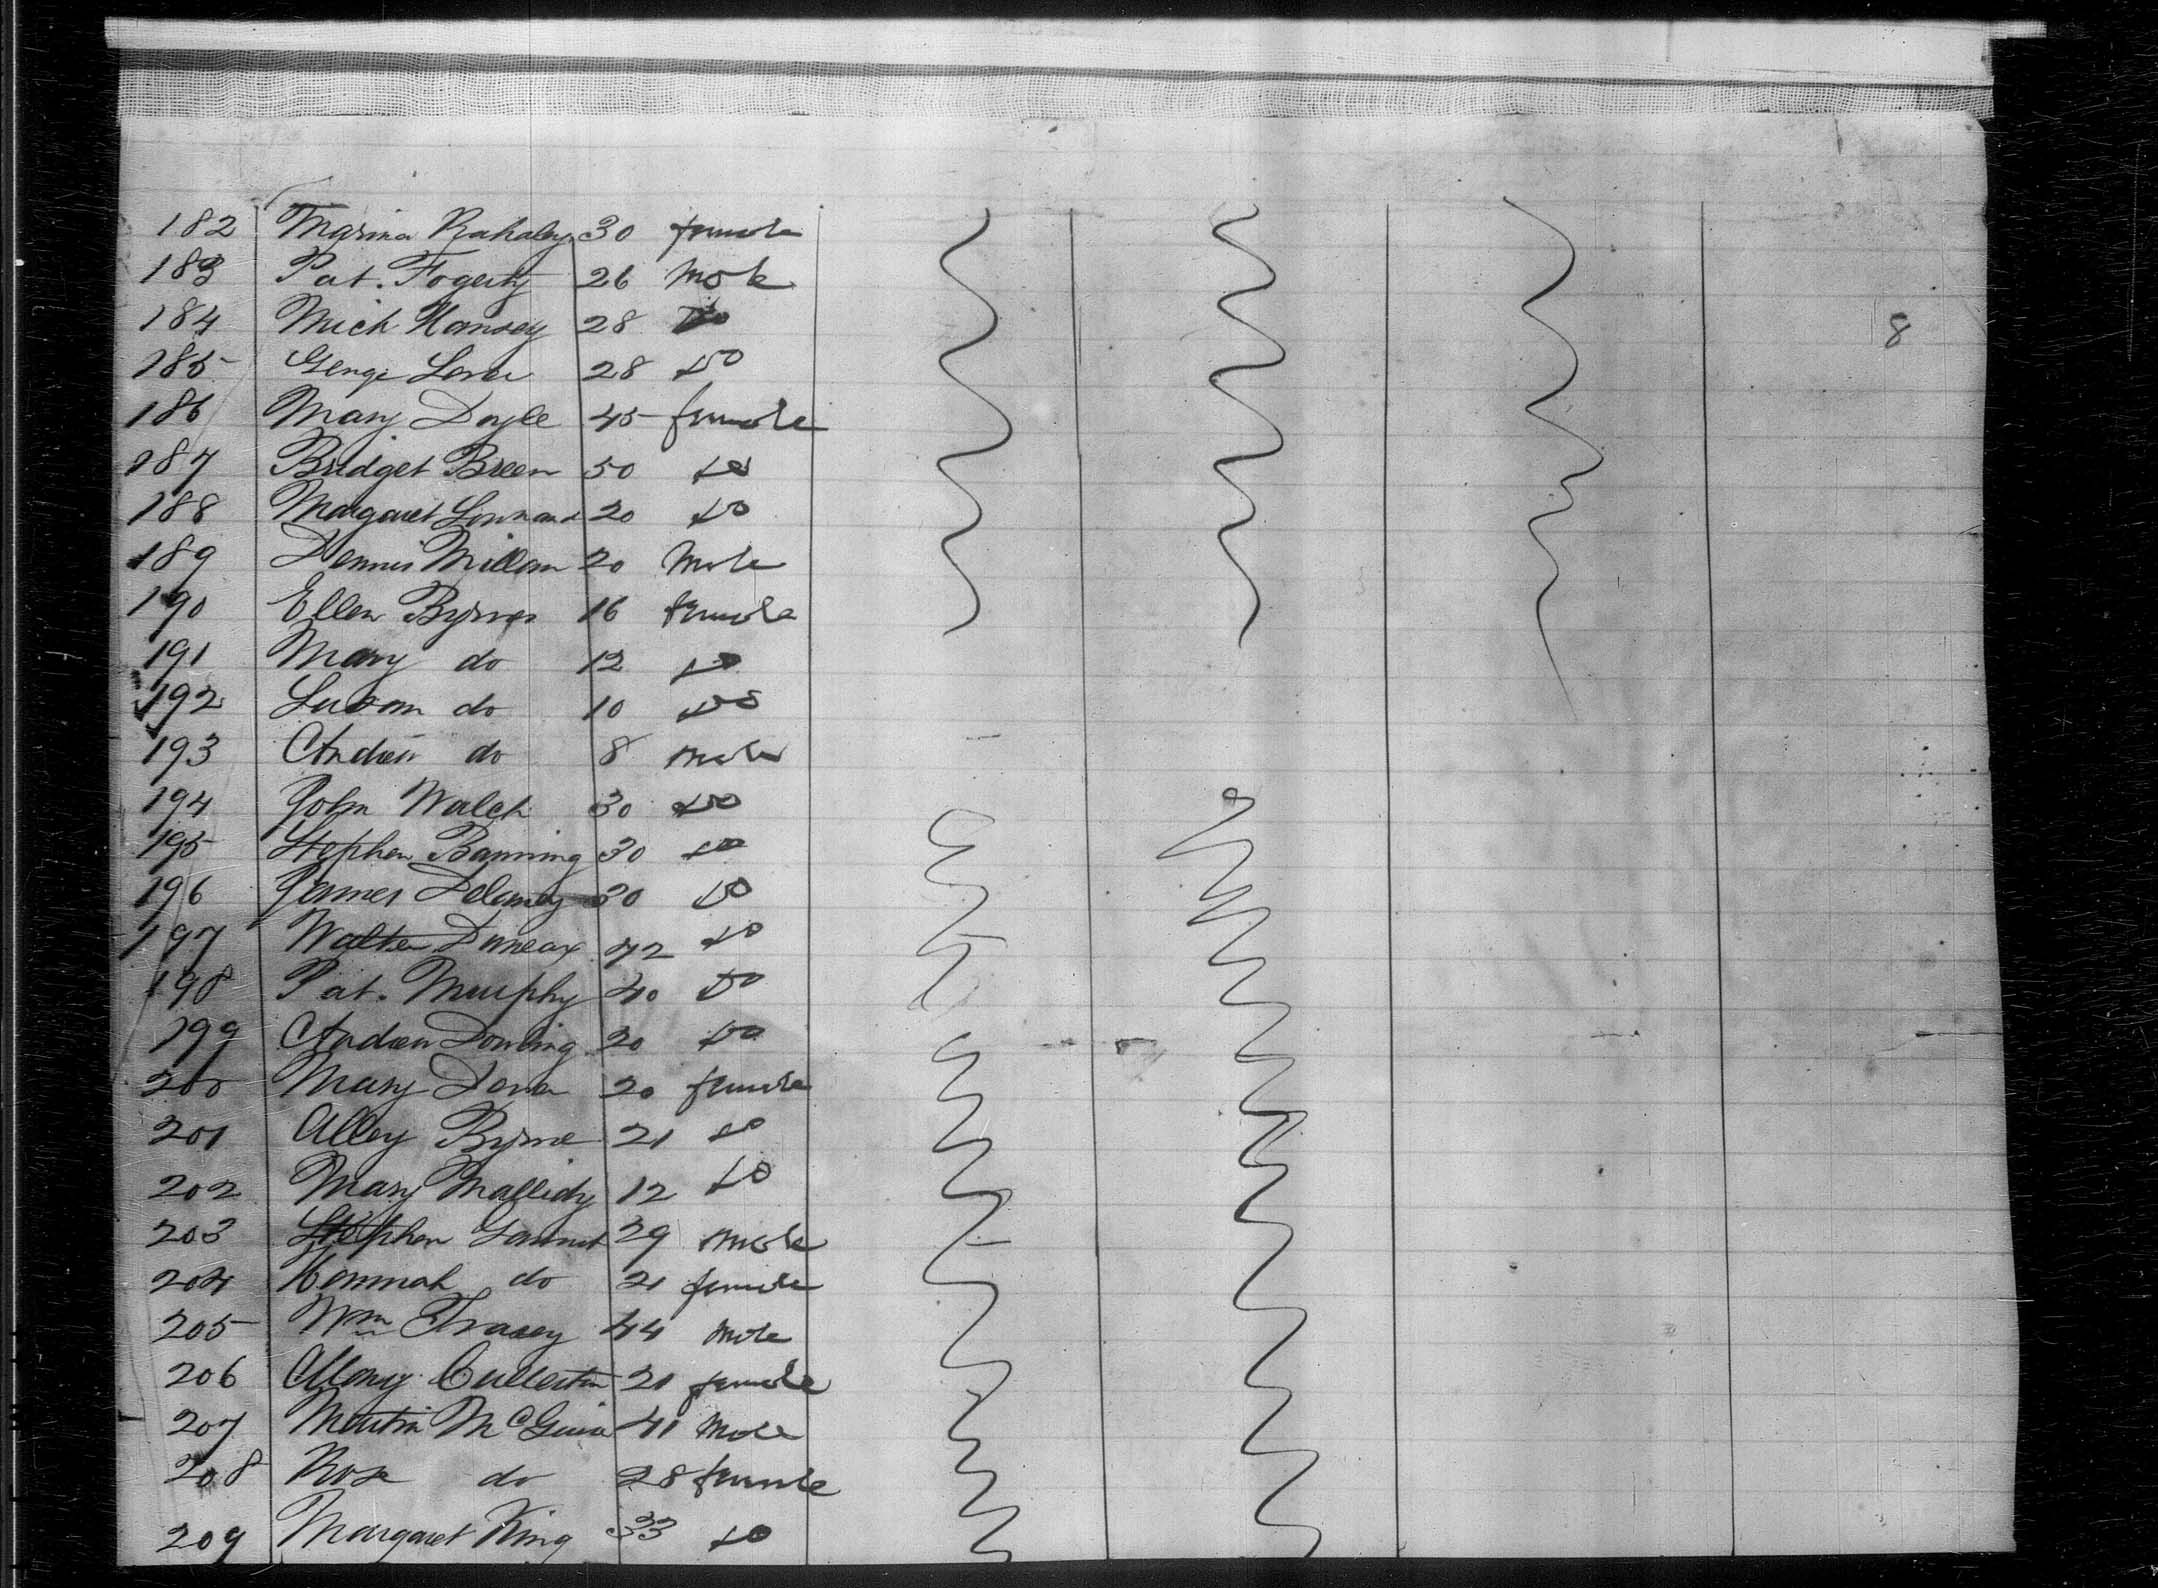 182 Marina Rahaley 30 female
183 Pat. Fogerty 26 Male
184 Mich 28 Do
8
185 George Lover 28 Do
186 Mary Doyle 45 female
187 Bridget Breen 50 Do
188 Margaret 20 Do
189 Dennis Millan 20 Male
190 Ellen Byrnes 16 female
191 Mary do 12 Do
192 Susan do 10 Do
193 Andrew do 8 male
194 John Walch 30 Do
195 Stephen Banning 30 Do
196 James Delaney 30 Do
197 Walter 42 Do
198 Pat. Murphy 40 Do
199 Andrew Dowling 20 Do
200 Mary 20 female
201 Alley Byrne 21 Do
202 Mary Mallidy 12 Do
203 Stephen 29 male
204 Hannah do 21 female
205 Wm Tracey 44 male
206 Cullerton 21 female
207 Martin McGuire 41 Male
208 Rose do 28 female
209 Margaret King 33 Do